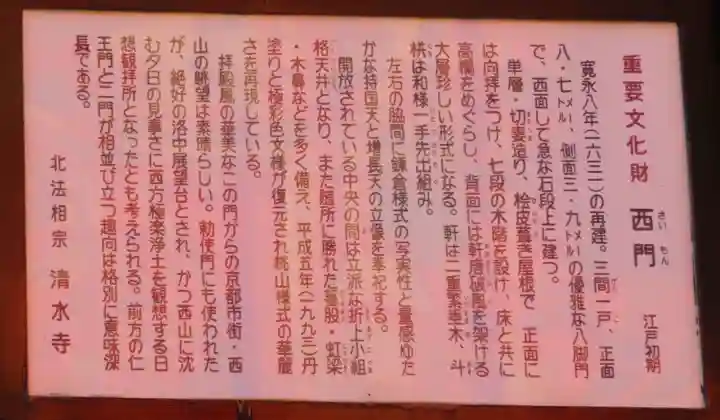 重要文化財 西門 江戸初期
さいもん
寛永八年(一六三一)の再建。三間一戸、正面
八・七㍍、側面三・九㍍の優雅な八脚門
で、西面して急な石段上に建つ。
単層・切妻造り、桧皮葺き屋根で 正面に
は向拝をつけ、七段の木階を設け、床と共に
高欄をめぐらし、背面には軒唐破風を架ける
大層珍しい形式になる。軒は二重繁垂木、斗
栱は和様一手先出組み。
左右の脇間に鎌倉様式の写実性と量感ゆた
かな持国天と増長天の立像を奉祀する。
開放されている中央の間は立派な折上小組
格天井となり、また随所に勝れた蟇股・虹梁
・木鼻などを多く備え、平成五年(一九九三)丹
塗りと極彩色文様が復元され桃山様式の華麗
さを再現している。
拝殿風の華美なこの門からの京都市街・西
山の眺望は素晴らしい。勅使門にも使われた
が、絶好の洛中展望台とされ、かつ西山に沈
む夕日の見事さに西方極楽浄土を観想する日
想観拝所となったとも考えられる。前方の仁
王門と二門が相並び立つ趣向は格別に意味深
長である。
北法相宗 清水寺